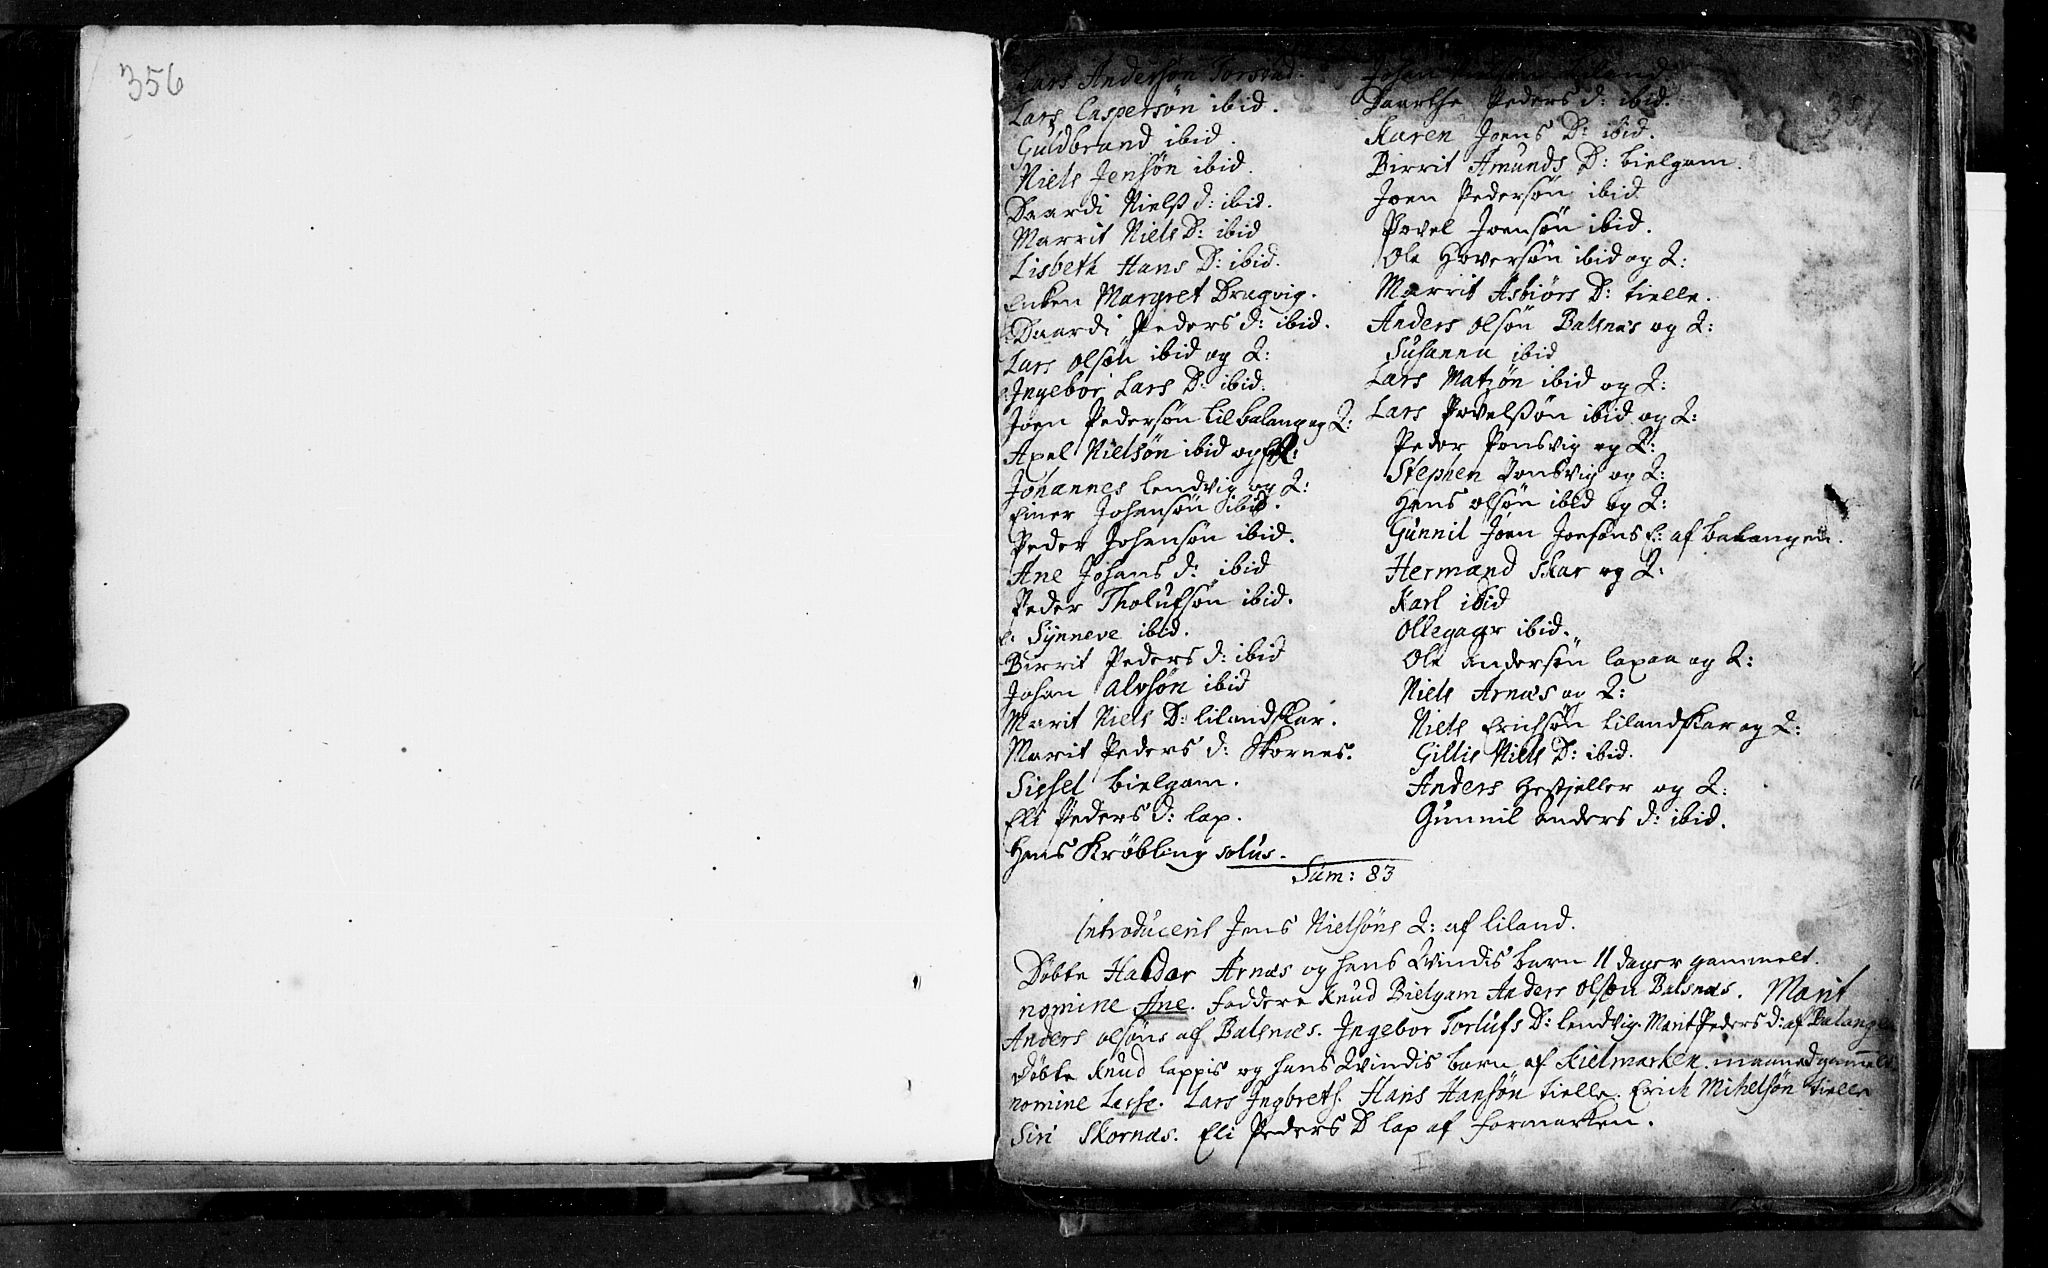 356
357
Lars Andersøn Forstad.
Lars Caspersøn ibid.
Guldbrand ibid.
Niels Jensøn ibid.
Daardi Nielß d: ibid.
Marrit Niels D: ibid
Lisbeth Hans D: ibid.
Enken Margret Dragvig.
Daardi Peders d: ibid.
Lars olsøn ibid og Q:
Ingebor Lars D: ibid.
Joen Pedersøn lil balang og Q:
Axel Nielsøn ibid og Q:
Johannes lendvig og Q:
Einer Johansøn ibid.
Peder Johansøn ibid.
Ane Johans d: ibid
Peder Tholufsøn ibid.
E. Synneve ibid.
Birrit Peders d: ibid
Johan alvsøn ibid
Marit Niels D: lilandskar.
Marit Peders d: Skornes.
Sissel bielgam.
Eli Peders d: lap.
Hans Krøbling solus.
Johan liland.
Daarthe Peders d: ibid.
Karen Joens D: ibid.
Birrit Amunds D: bielgam.
Joen Pedersøn ibid
Povel Joensøn ibid.
Ole Hoversøn ibid og Q:
Marrit Asbiørs D: tielle.
Anders olsøn Balsnæs og Q:
Susanna ibid
Lars Matzøn ibid og Q:
Lars Povelßøn ibid og Q:
Peder Ponsvig og Q:
Stephen Ponsvig og Q:
Hans olsøn ibid og Q:
Gunnil Joen Joensøns E: af balangen.
Hermand Skar og Q:
Karl ibid
Ollegaar ibid.
Ole andersøn lapaa og Q:
Niels Arnæs og Q:
Niels Erichsøn lilandskar og Q:
Gillis Niels D: ibid.
Anders Hestjeller og Q:
Gunnil anders d: ibid.
Sum: 83
Introducerit Jens Nielsøns Q: af liland.
Døbte Haldor Arnæs og hans Qvindis barn 11 dager gammelt.
nomine Ane. Faddere Knud Bielgam Anders olsøn Balsnæs. Marit
Anders olsøns af Balsnæs. Ingebor Torlufs D: lendvig. Marit Peders d: af Balangen
Døbte Knud lappis og hans Qvindis barn af Kielmarken. maaned gammelt
nomine Lasse. Lars Ingbrets. Hans Hansøn tielle. Erich Mihelsøn tielle
Siri Skornæs. Eli Peders D lap af Formarken.